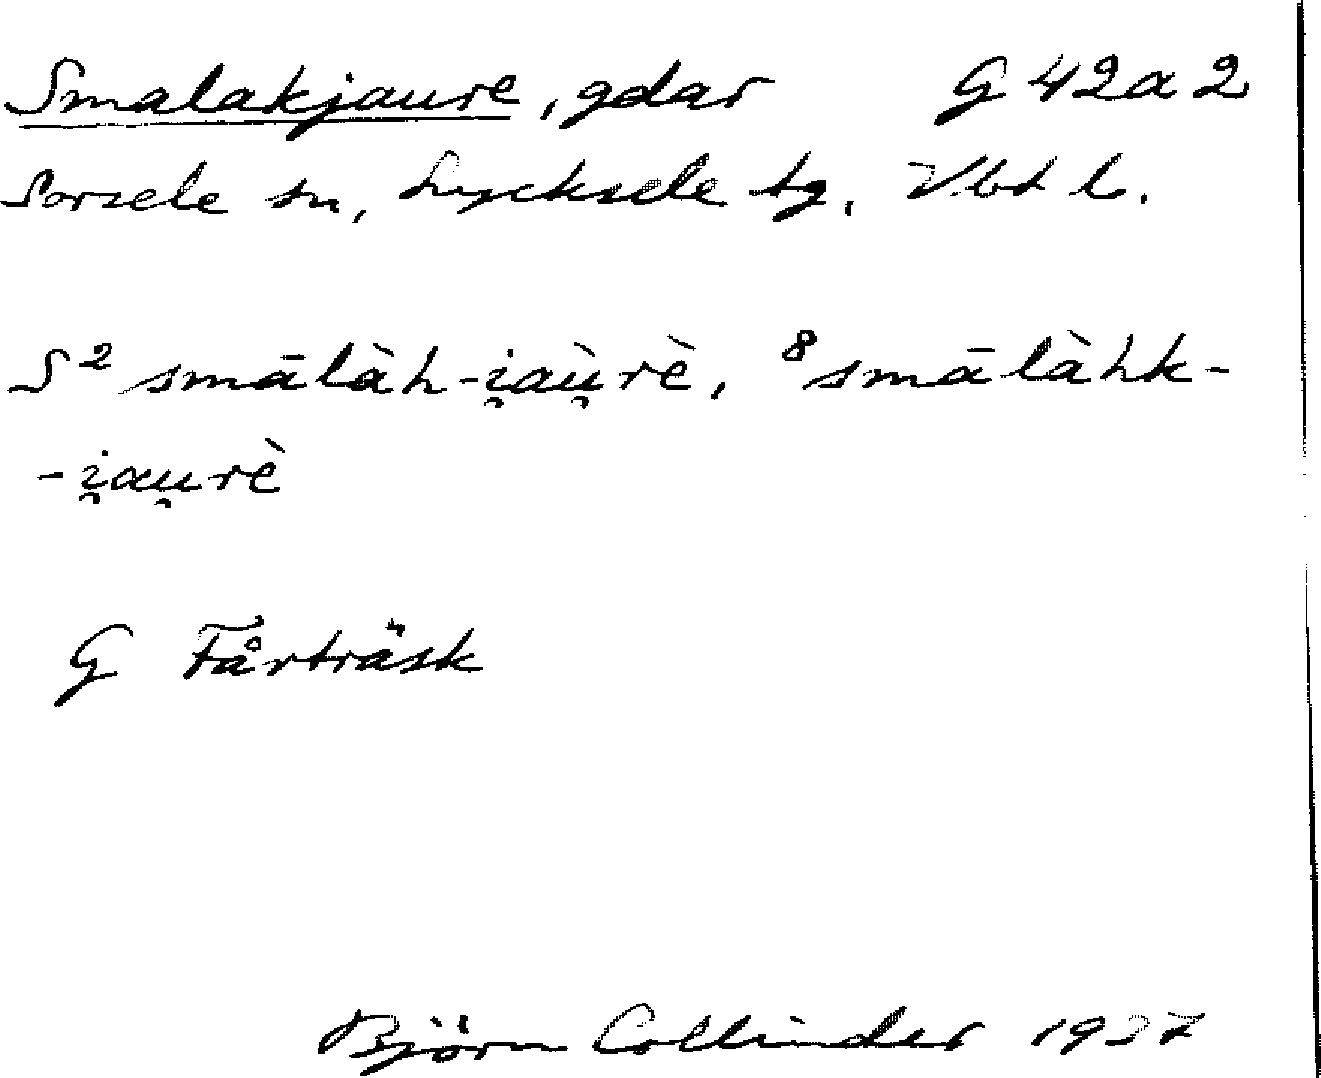 Smalakjaure, gdar G 42a2
Sorsele sn, Lycksele tg, Vbtl.
S² smālàh-i̯aù̯rè, ⁸smālàhk-
-i̯au̯rè
G Fårträsk
Björn Collinder 1937